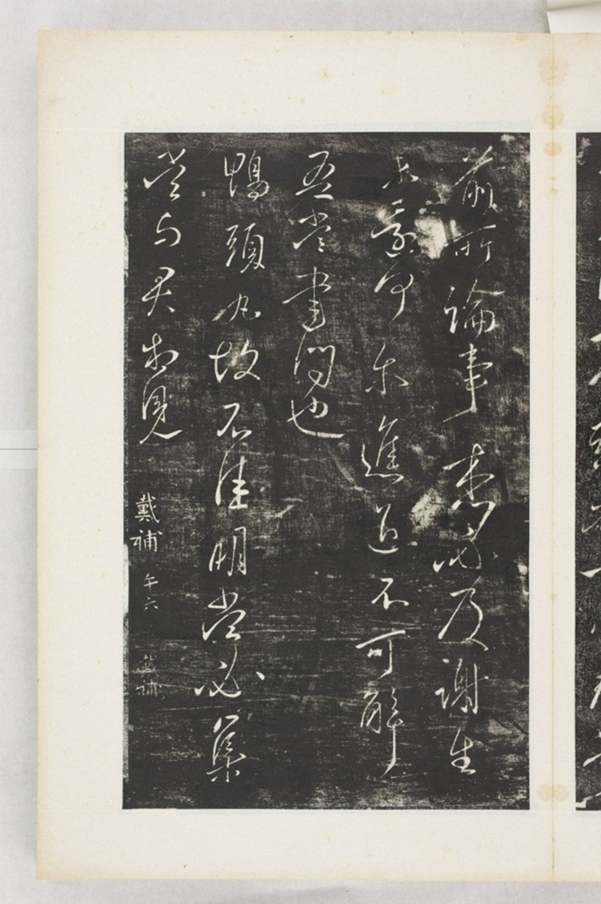 前所論事想必及謝生
未還何尔進退不可解
吾當書問也
鴨頭丸故不佳明當必集
當與君相見
戴補
午六